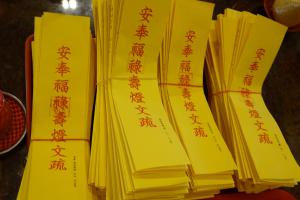 安奉福祿壽燈文疏
安奉福祿壽燈文疏
安奉福祿壽燈文疏
安奉福祿壽燈文疏